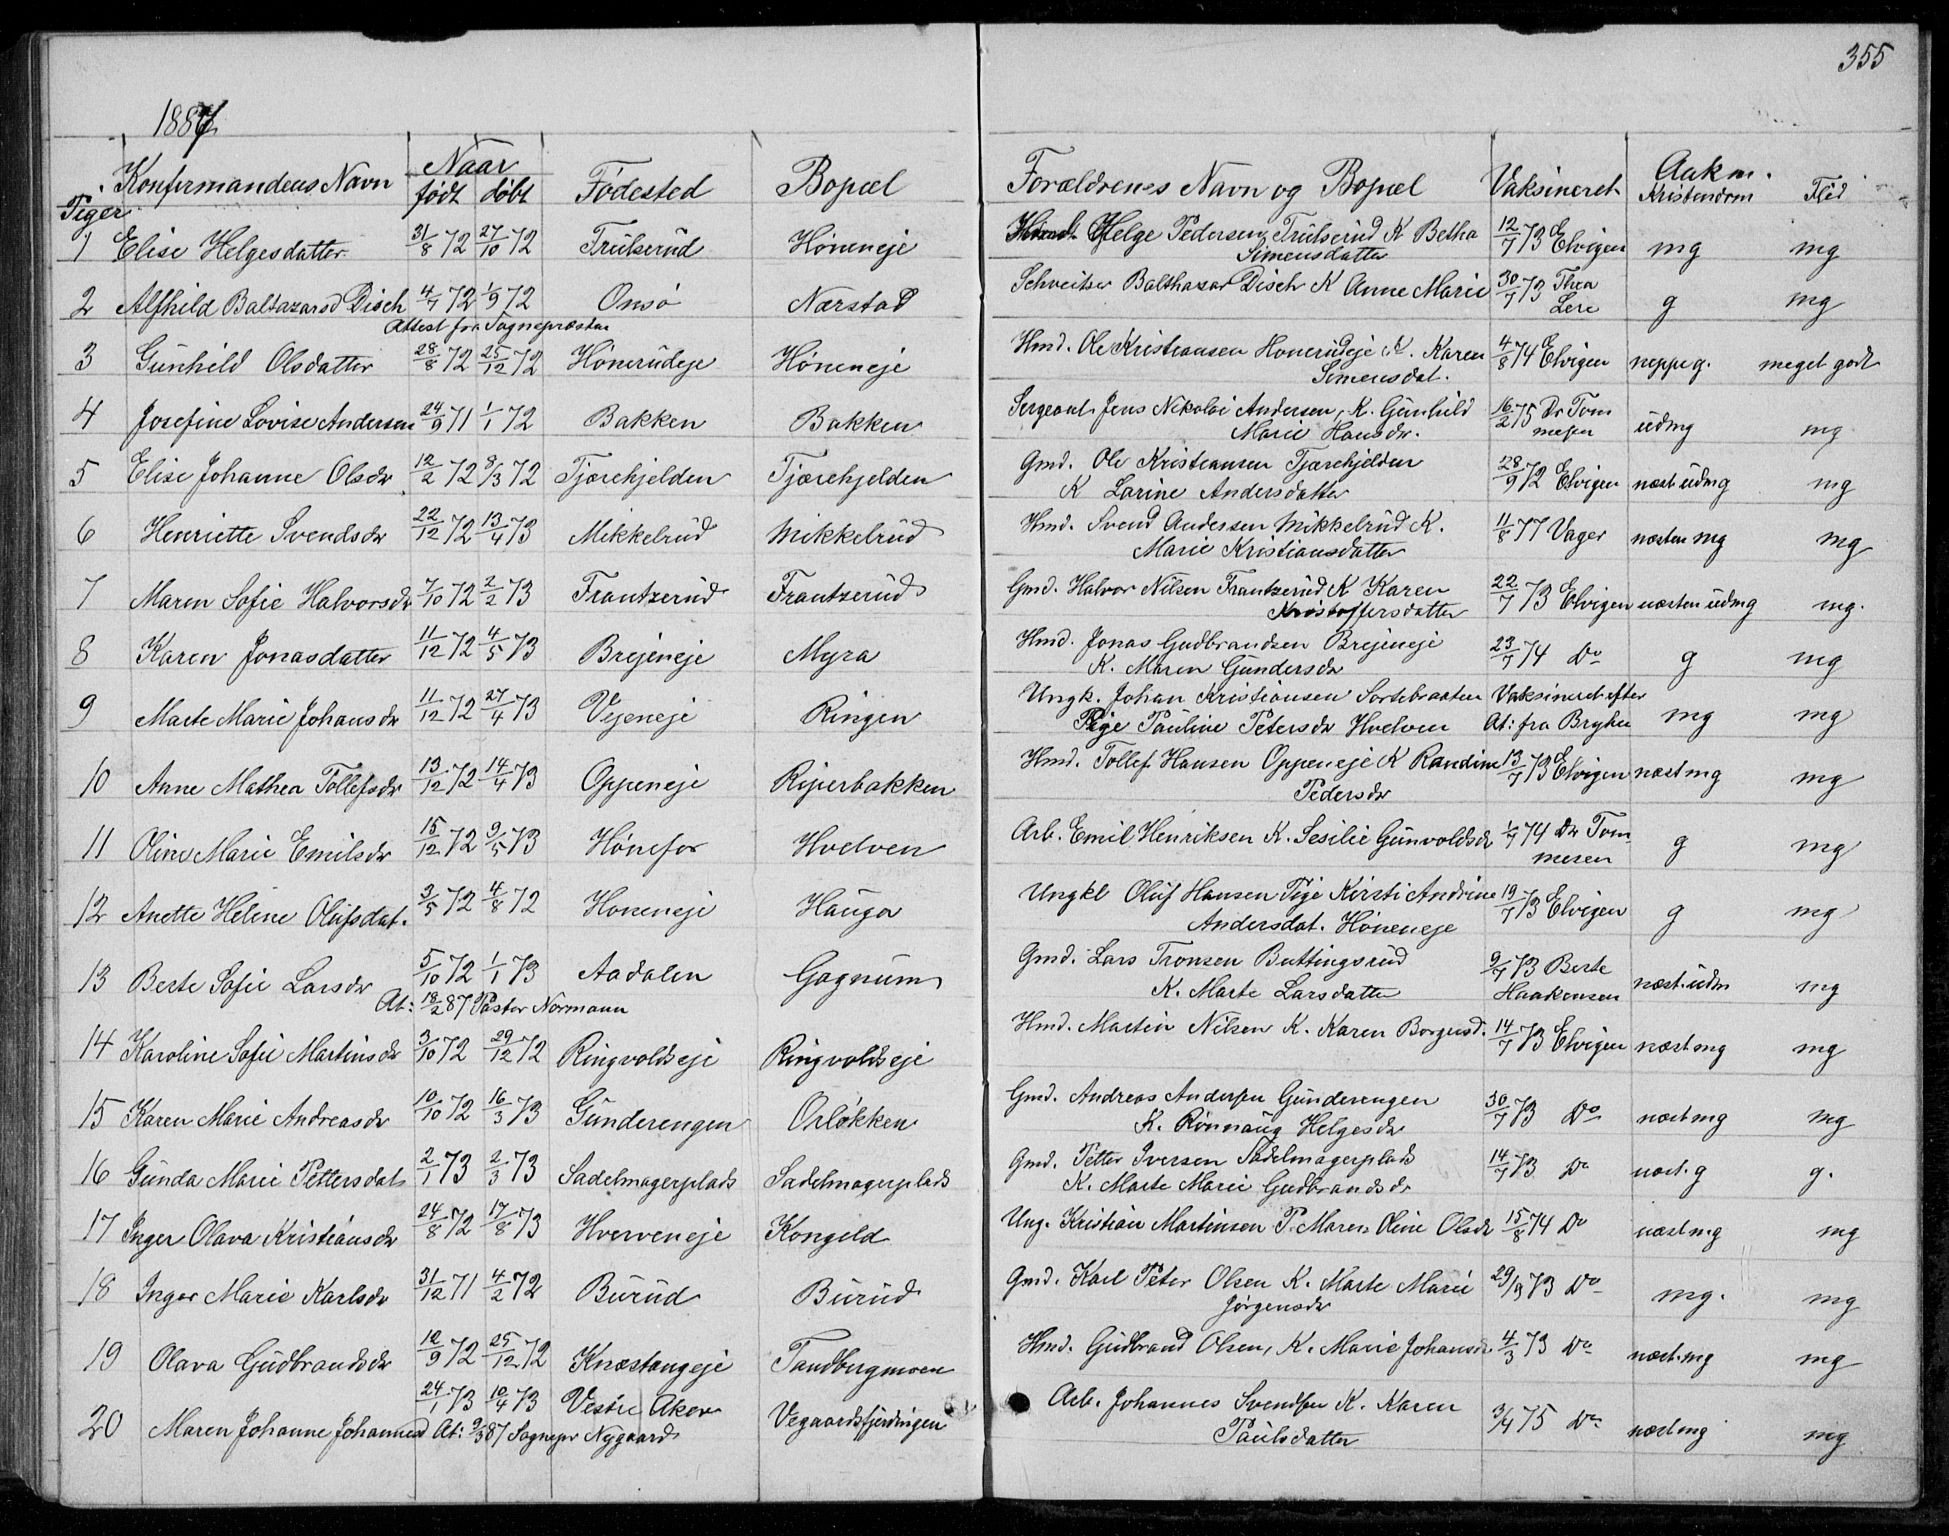 355
1887
Piger
Konfirmandens Navn | Naar født | døbt | Fødested | Bopæl | Forældrenes Navn og Bopæl | Vaksineret | Aakm. Kristendom | Flid
1 Elise Helgesdatter 31/8 72 27/10 72 Trulserud Høneneje Helge Pedersen Trulserud K Betha Simensdatter 12/7 73 Elvigen mg mg
2 Alfhild Baltazarsd Disch 4/7 72 1/9 72 Onsø Nærstad Schveitser Balthazar Disch K Anne Marie 30/7 73 Thea Lere g mg
Attest fra Sognepræsten
3 Gunhild Olsdatter 28/8 72 25/12 72 Hönerudeje Høneneje Hmd. Ole Kristiansen Honerudeje K. Karen Simensdat. 4/8 74 Elvigen neppe g. meget godt
4 Josefine Lovise Andersen 24/9 71 1/1 72 Bakken Bakken Sergeant Jens Nikolai Andersen, K. Gunhild Marie Hansdr. 16/2 75 Dr Tommesen udmg mg
5 Elise Johanne Olsdr 12/2 72 8/3 72 Tjærehjelden Tjærehjelden Gmd. Ole Kristiansen Tjærehjelden K Larine Andersdatter 28/9 72 Elvigen næst udmg mg
6 Henriette Svendsdr 22/12 72 13/4 73 Mikkelrud Mikkelrud Hmd. Svend Andersen Mikkelrud K. Marie Kristiansdatter 11/8 77 Vager næsten mg mg
7 Maren Sofie Halvorsdr 7/10 72 2/2 73 Frantzerud Frantzerud Gmd. Halvor Nilsen Frantzerud K Karen Kristoffersdatter 22/7 73 Elvigen næsten udmg mg.
8 Karen Jonasdatter 11/12 72 4/5 73 Brejeneje Myra Hmd. Jonas Gudbrandsen Brejeneje K. Maren Gundersdr 23/7 74 Do g mg
9 Marte Marie Johansdr 11/12 72 27/4 73 Vejeneje Ringen Ungk. Johan Kristiansen Sortebraaten Pige Pauline Petersdr Hvelven Vaksineret efter At: fra Bryhn mg mg
10 Anne Mathea Tollefsdr 13/12 72 14/4 73 Oppeneje Riperbakken Hmd. Tollef Hansen Oppeneje K Randine Pedersdr 13/7 73 Elvigen næst mg mg
11 Oline Marie Emilsdr 15/12 72 9/5 73 Hönefos Hvelven Arb. Emil Henriksen K. Sesilie Gunvoldsdr 1/7 74 Dr Tommesen g mg
12 Anette Helene Olufsdat. 3/5 72 4/8 72 Honeneje Hauga Ungkl Oluf Hansen Pige Kirsti Andrine Andersdat. Höneneje 19/7 73 Elvigen g mg
13 Berte Sofie Larsdr 5/10 72 1/1 73 Aadalen Gagnum Gmd. Lars Tronsen Buttingsrud K. Marte Larsdatter 9/7 73 Berte Haakensen næst. udm mg
At: 18/2 87 Pastor Normann
14 Karoline Sofie Martinsdr 3/10 72 29/12 72 Ringvoldseje Ringvoldseje Hmd. Martin Nilsen K. Karen Borgersd. 14/7 73 Elvigen næst mg mg
15 Karen Marie Andreasdr 10/10 72 16/3 73 Gunderengen Orløkken Gmd. Andreas Andersen Gunderengen K. Rönnaug Helgesdr 30/7 73 Do næst mg mg
16 Gunda Marie Pettersdat 2/1 73 2/3 73 Sadelmagerplads Sadelmagerplads Gmd. Petter Iversen Sadelmagerplads K. Marte Marie Gudbrandsdr 14/7 73 Do næst. g g.
17 Inger Olava Kristiansdr 24/8 72 17/8 73 Hverveneje Kongeld Ung. Kristian Martinsen P. Maren Oline Olsdr 15/8 74 Do næst mg mg
18 Inger Marie Karlsdr 31/12 71 4/2 72 Burud Burud Gmd. Karl Peter Olsen K. Marte Marie Jörgensdr 29/9 73 Do mg. mg
19 Olava Gudbrandsdr 12/9 72 25/12 72 Knestangeje Tandbergmoen Hmd. Gudbrand Olsen, K. Marie Johansdr 4/3 73 Do næst. mg mg
20 Maren Johanne Johannesd 24/1 73 10/4 73 Vestre Aker Vegaardsfjerdingen Arb. Johannes Svendsen K. Karen Paulsdatter 3/4 75 Do næst mg mg
At: 9/3 87 Sognepr Nygaard